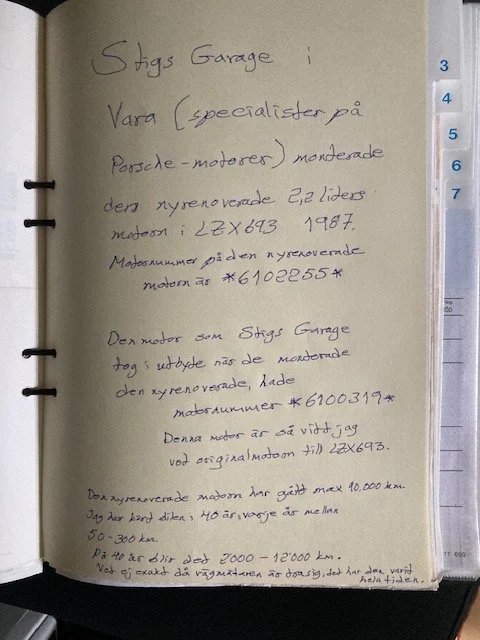 Stigs Garage i
Vara (specialister på
Porsche-motorer) monterade
den nyrenoverade 2,2 liters
motorn i LZX693 1987.
Motornummer på den nyrenoverade
motorn är *6102255*
Den motor som Stigs Garage
tog i utbyte när de monterade
den nyrenoverade, hade
motornummer *6100319*
Denna motor är så vitt jag
vet originalmotorn till LZX693.
Den nyrenoverade motorn har gått max 10.000 km.
Jag har kört bilen i 40 år, varje år mellan
50-300 km.
På 40 år blir det 2000 - 12'000 km.
Vet ej exakt då vägmätaren är trasig, det har den varit
hela tiden.
3
4
5
6
7